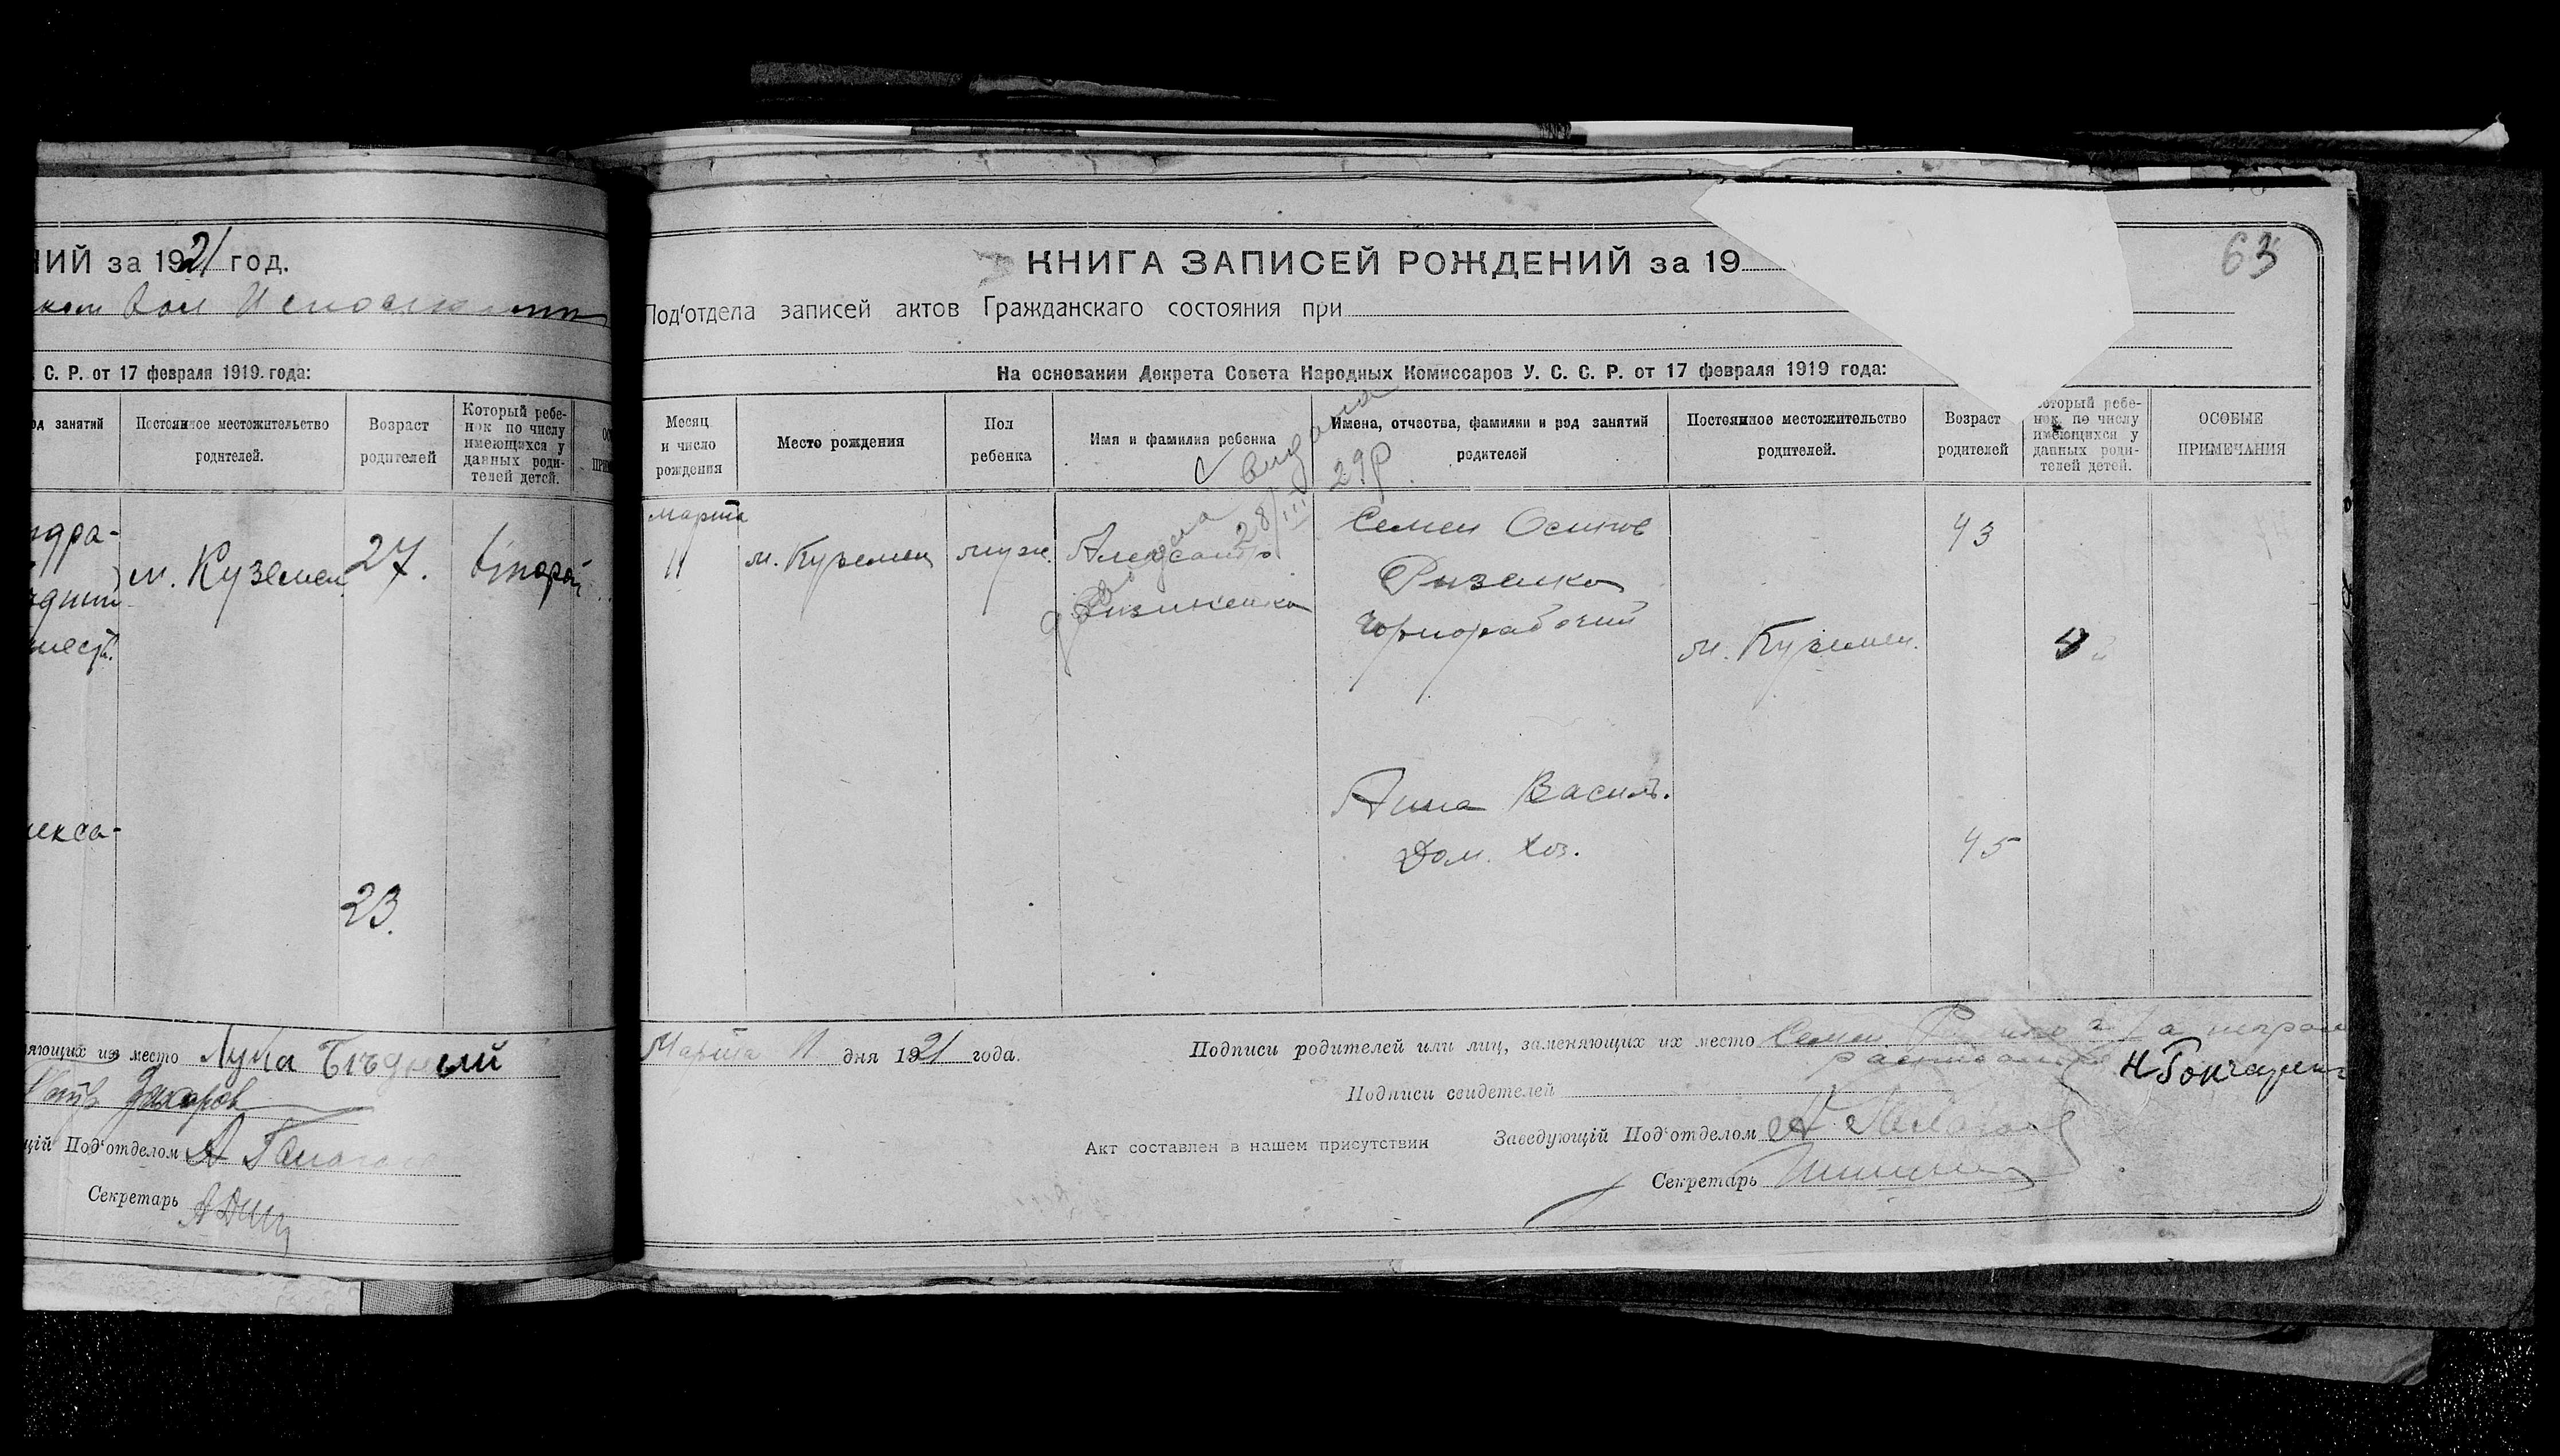 НИЙ за 1921 год.
С. Р. от 17 февраля 1919 года:
од занятий
Постоянное местожительство
родителей.
Возраст
родителей
Который ребе-
нок по числу
имеющихся у
данных роди-
телей детей.
ндра-
м. Куземен
27.
второй
лекса-
23.
няющих их место Лука Бѣдный
Захаров
щій Под'отделом А
Секретарь
63
КНИГА ЗАПИСЕЙ РОЖДЕНИЙ за 19
Под'отдела записей актов Гражданскаго состояния при
На основании Декрета Совета Народных Комиссаров У. С. С. Р. от 17 февраля 1919 года:
Месяц
и число
рождения
Место рождения
Пол
ребенка
Имя и фамилия ребенка
Имена, отчества, фамилии и род занятий
родителей
Постоянное местожительство
родителей.
Возраст
родителей
Который ребе-
нок по числу
имеющихся у
данных роди-
телей детей.
ОСОБЫЕ
ПРИМЕЧАНИЯ
видана
28/III 29р
Марта
11
м. Куземен
муж.
Александр
Семен Осипов
Ризенко
Чорнорабочий
43
м. Куземен.
Анна Василь.
Дом. Хоз.
45
Марта 11 дня 1921 года.
Подписи родителей или лиц, заменяющих их место Семен Ризенко а за неграм
Н Гончаренк
Подписи свидетелей
Акт составлен в нашем присутствии
Заведующій Под'отделом А
Секретарь